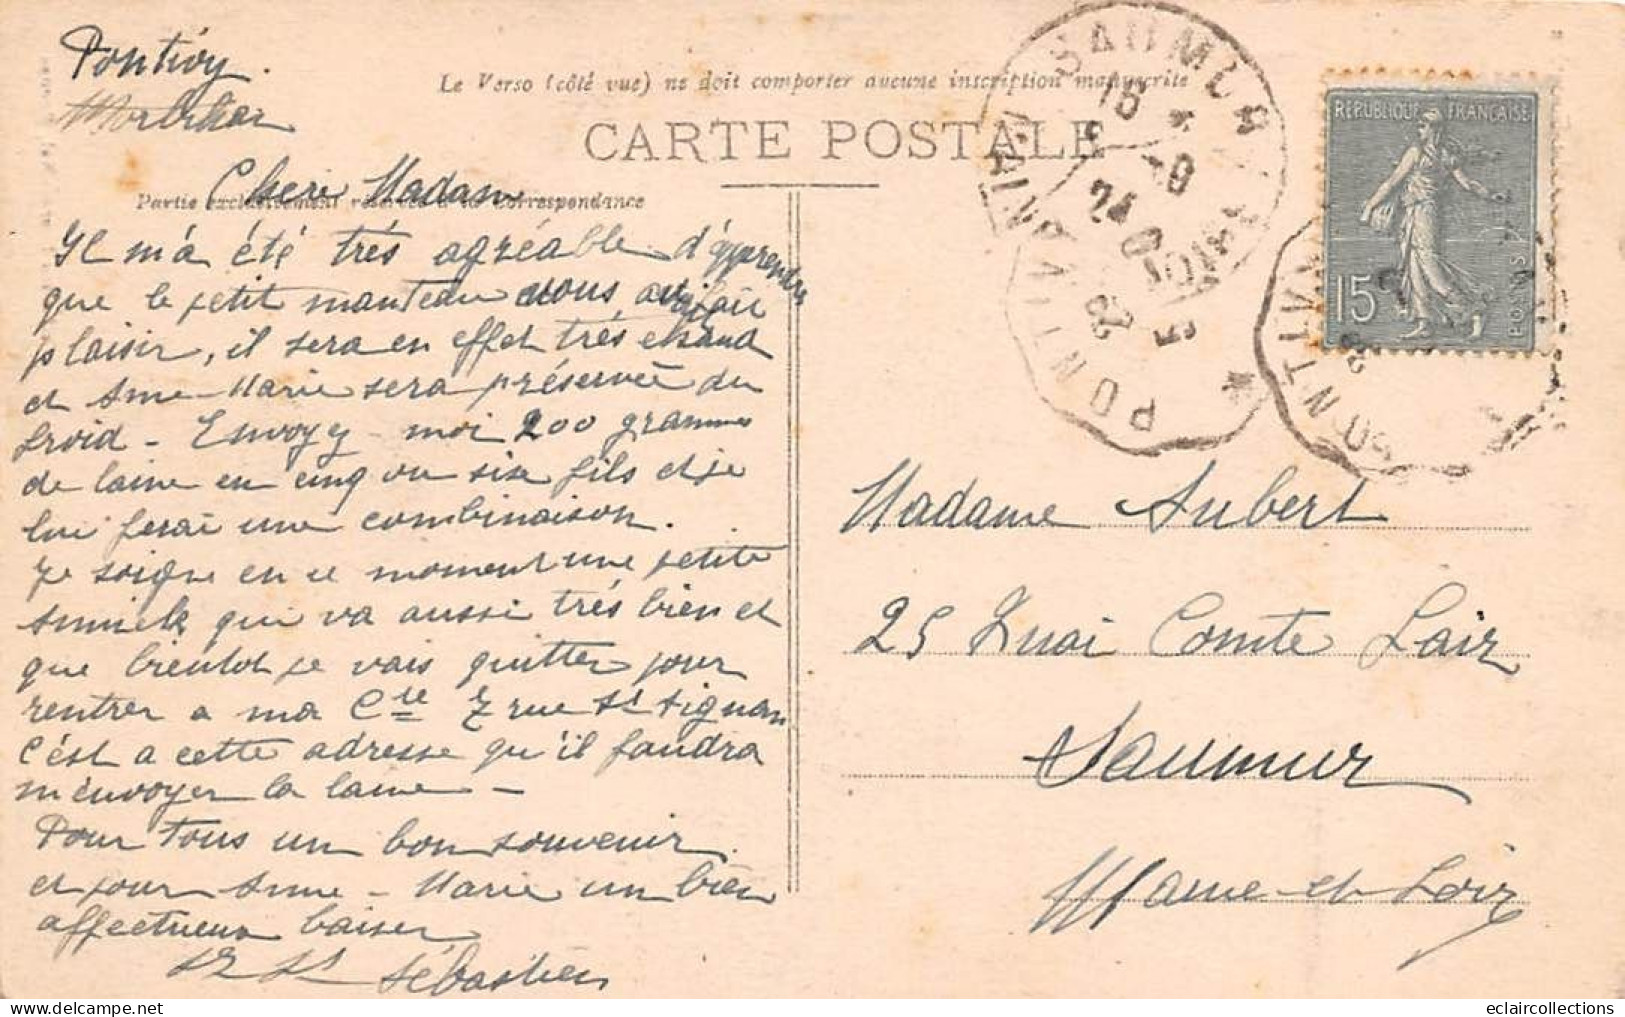 Pontivy.
Morbihan
Le Verso (côté vue) ne doit comporter aucune inscription manuscrite
CARTE POSTALE
Partie exclusivement réservée à la correspondance
Chere Madam
Il m'a été très agréable d'apprendre
que le petit manteau vous a fait
plaisir, il sera en effet très chaud
et Anne-Marie sera préservée du
froid - Envoyez-moi 200 grammes
de laine en cinq ou six fils et je
lui ferai une combinaison.
Je soigne en ce moment une petite
Annick qui va aussi très bien et
que bientot je vais quitter pour
rentrer a ma Cté 7 rue St
c'est a cette adresse qu'il faudra
m'envoyer la laine -
Pour tous un bon souvenir
et pour Anne-Marie un bien
affectueux baiser
Sr St Sébastien
REPUBLIQUE FRANÇAISE
15
POSTES
SAUMUR
PONTIVY
Madame Aubert
25 Quai Comte Lair
Saumur
Maine-et-Loire
eclaircollections
www.delcampe.net